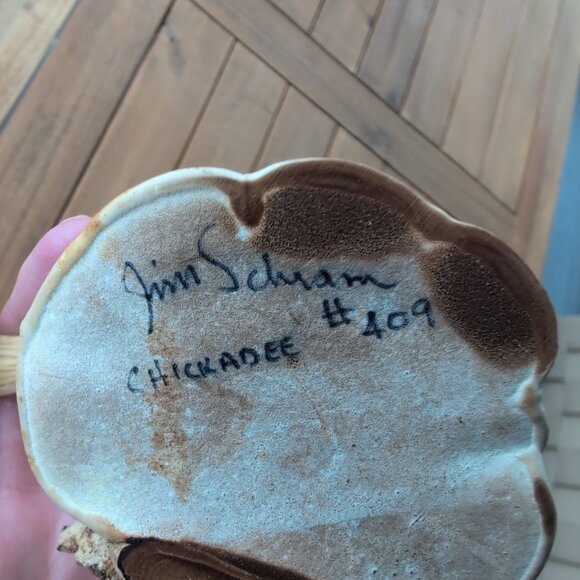 Jim Schram
# 409
CHICKADEE